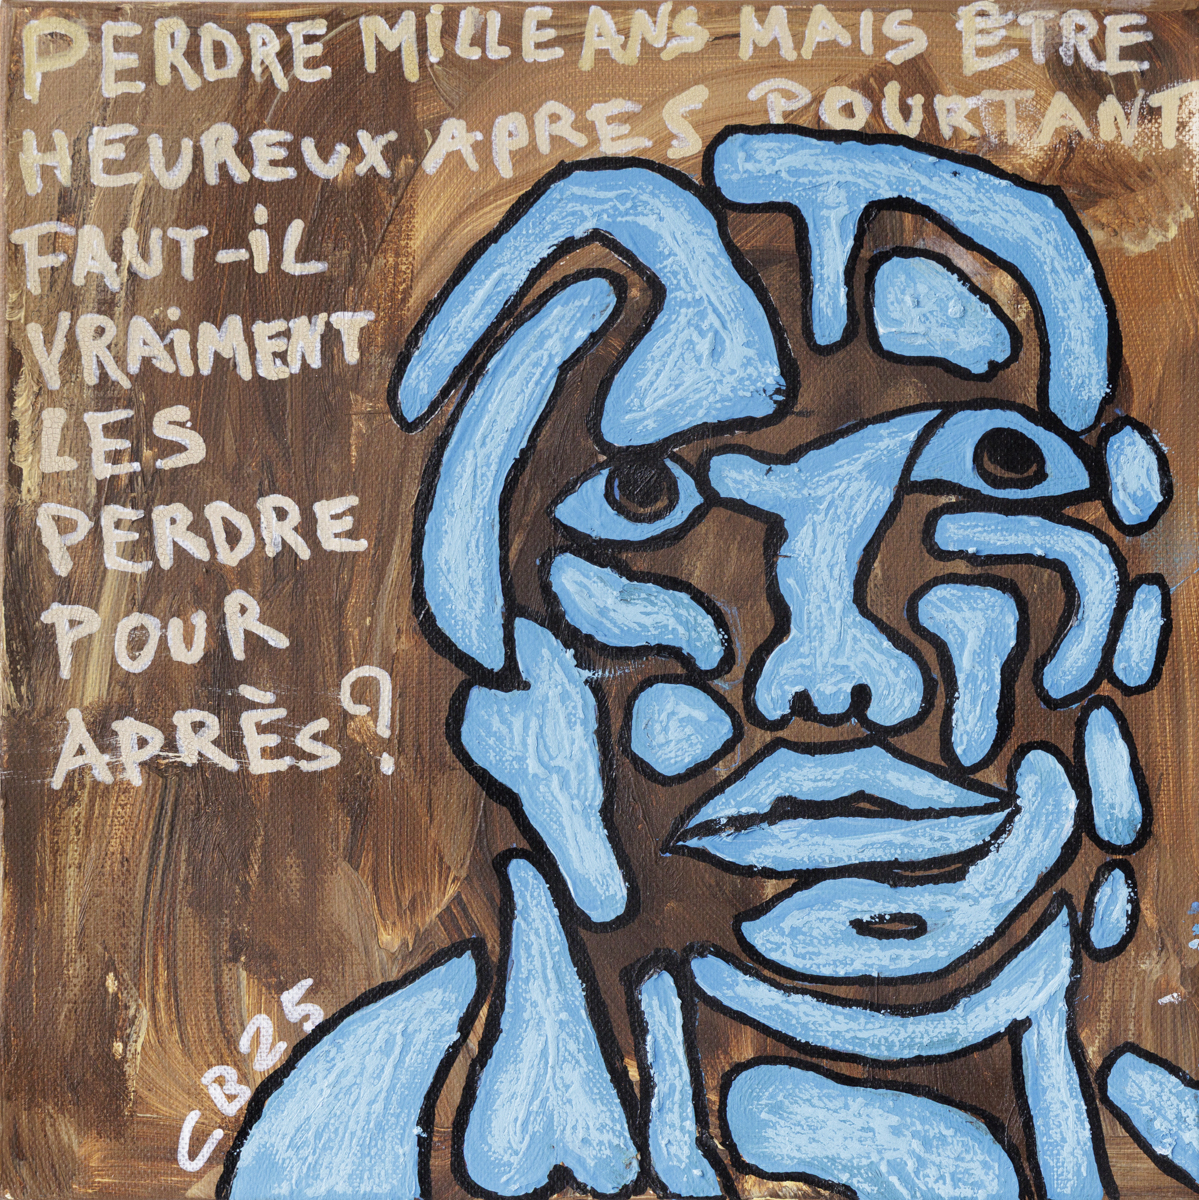 PERDRE MiLLE ANS MAIS ÊTRE
HEUREUX APRES POURTANT
FAUT-iL
VRAiMENT
LES
PERDRE
POUR
APRÈS?
CB25